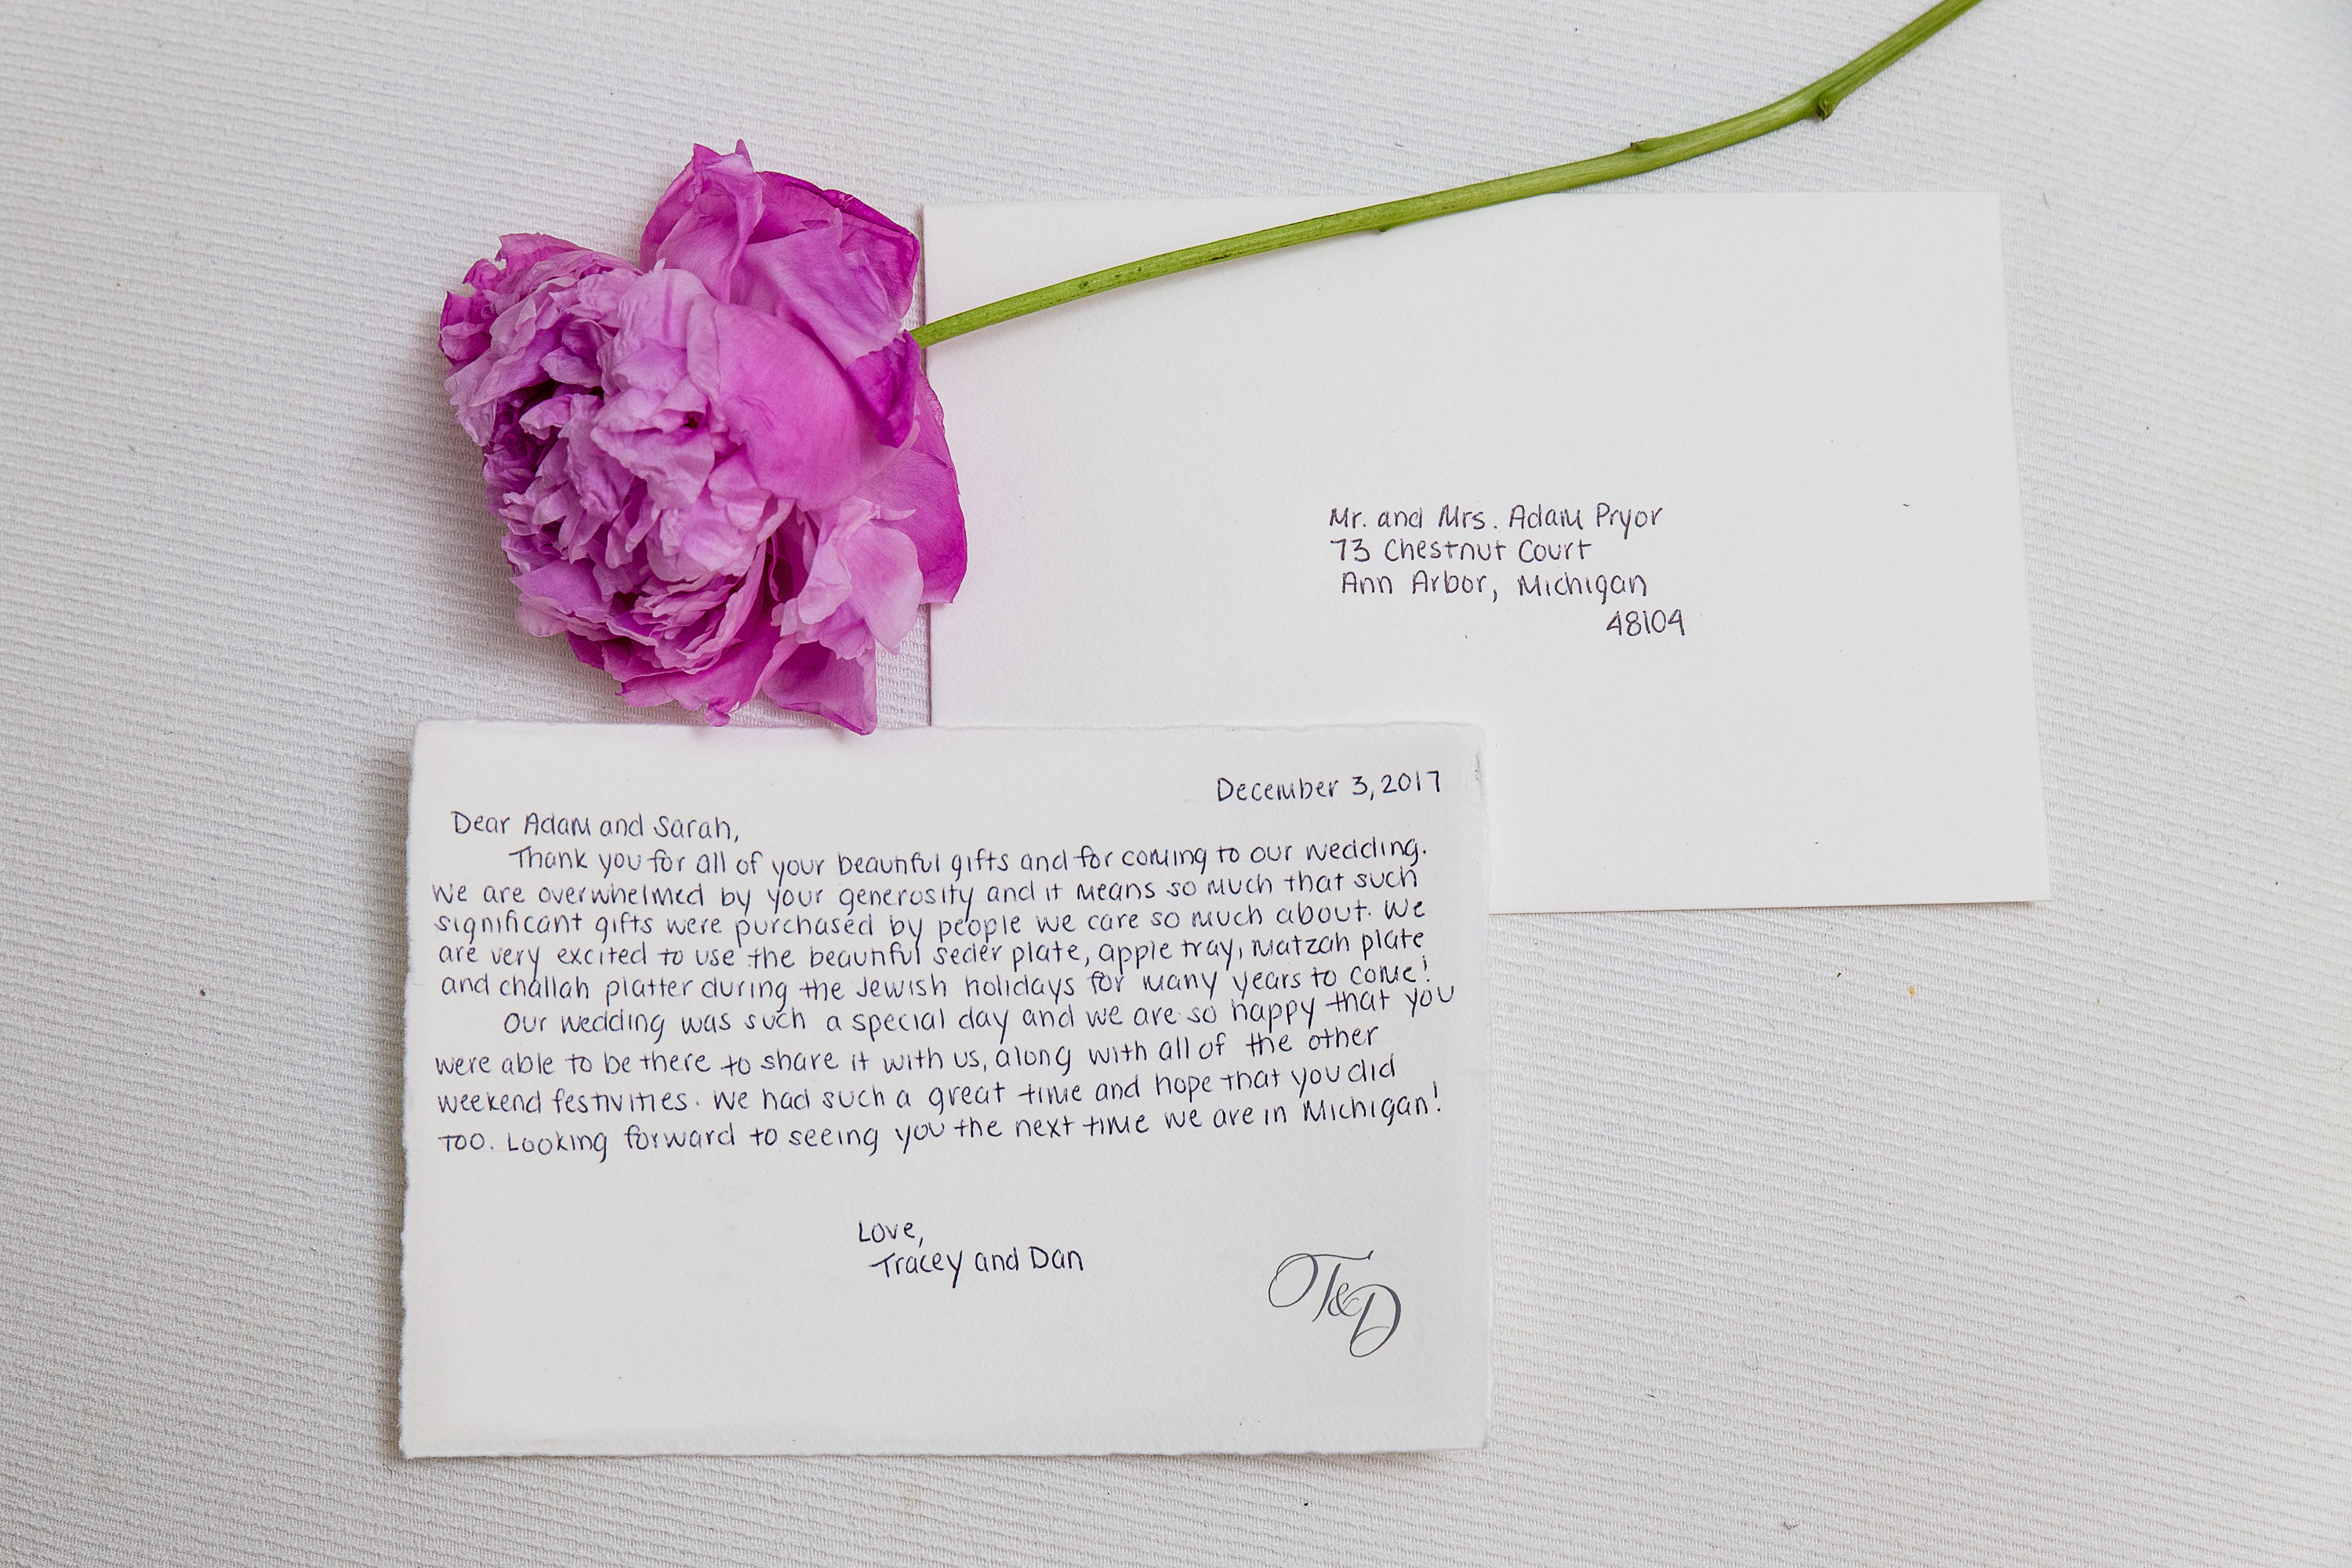 Mr. and Mrs. Adam Pryor
73 Chestnut Court
Ann Arbor, Michigan
48104
December 3, 2017
Dear Adam and Sarah,
Thank you for all of your beautiful gifts and for coming to our wedding.
We are overwhelmed by your generosity and it means so much that such
significant gifts were purchased by people we care so much about. We
are very excited to use the beautiful seder plate, apple tray, matzah plate
and challah platter during the Jewish holidays for many years to come!
Our wedding was such a special day and we are so happy that you
were able to be there to share it with us, along with all of the other
weekend festivities. We had such a great time and hope that you did
too. Looking forward to seeing you the next time we are in Michigan!
Love,
Tracey and Dan
T&D